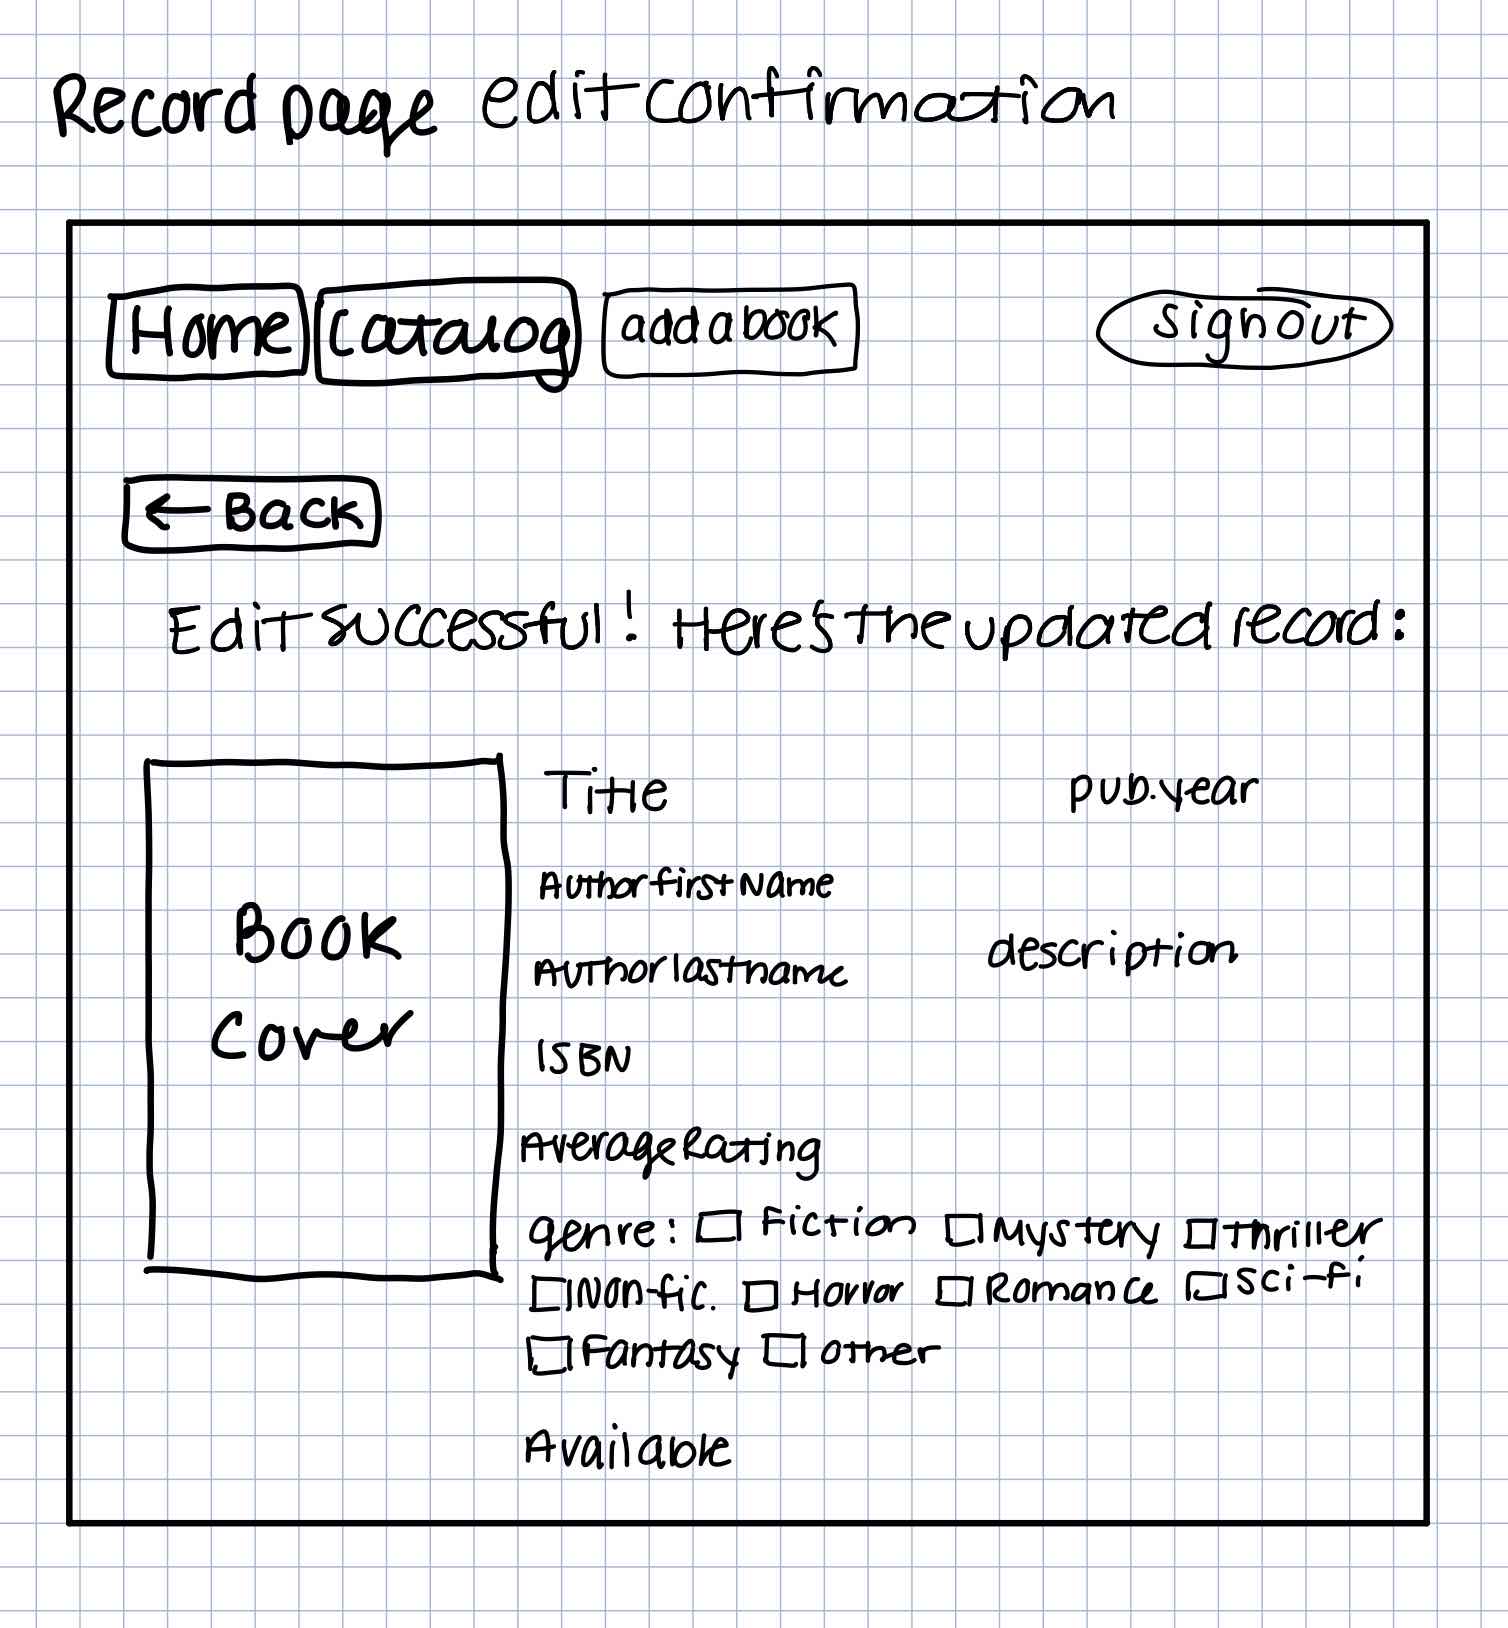 Record page edit confirmation
Home Catalog add a book sign out
← Back
Edit successful! Here's the updated record:
Title pub. year
Author first Name
Author last name description
Book
Cover
ISBN
Average Rating
genre: □ Fiction □ Mystery □ thriller
□ Non-fic. □ Horror □ Romance □ sci-fi
□ Fantasy □ other
Available